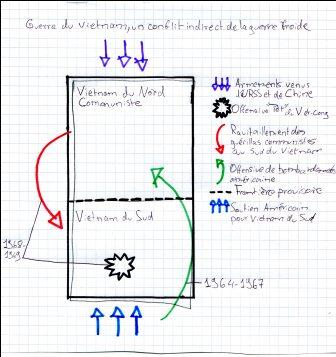 Guerra du Vietnam, un conflit indirect de la guerre froide
Vietnam du Nord
Comouniste
Vietnam du Sud
1968-
1969
1964-1967
Armements venus
d'URSS et de Chine
Offensive Têt du Viet-cong
Ravitaillement des
guérillas communistes
au Sud du Vietnam
Offensive de bombardements
américaine
Frontière provisoire
Soutien Américain
pour Vietnam du Sud